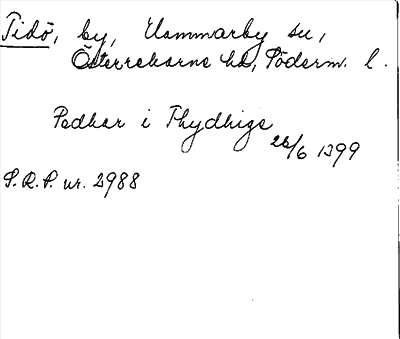 Tidö, by, Hammarby sn,
Österrekarne hd, Söderm. l.
Pedhar i Thydhigø
26/6 1399
S.R.P. nr. 2988